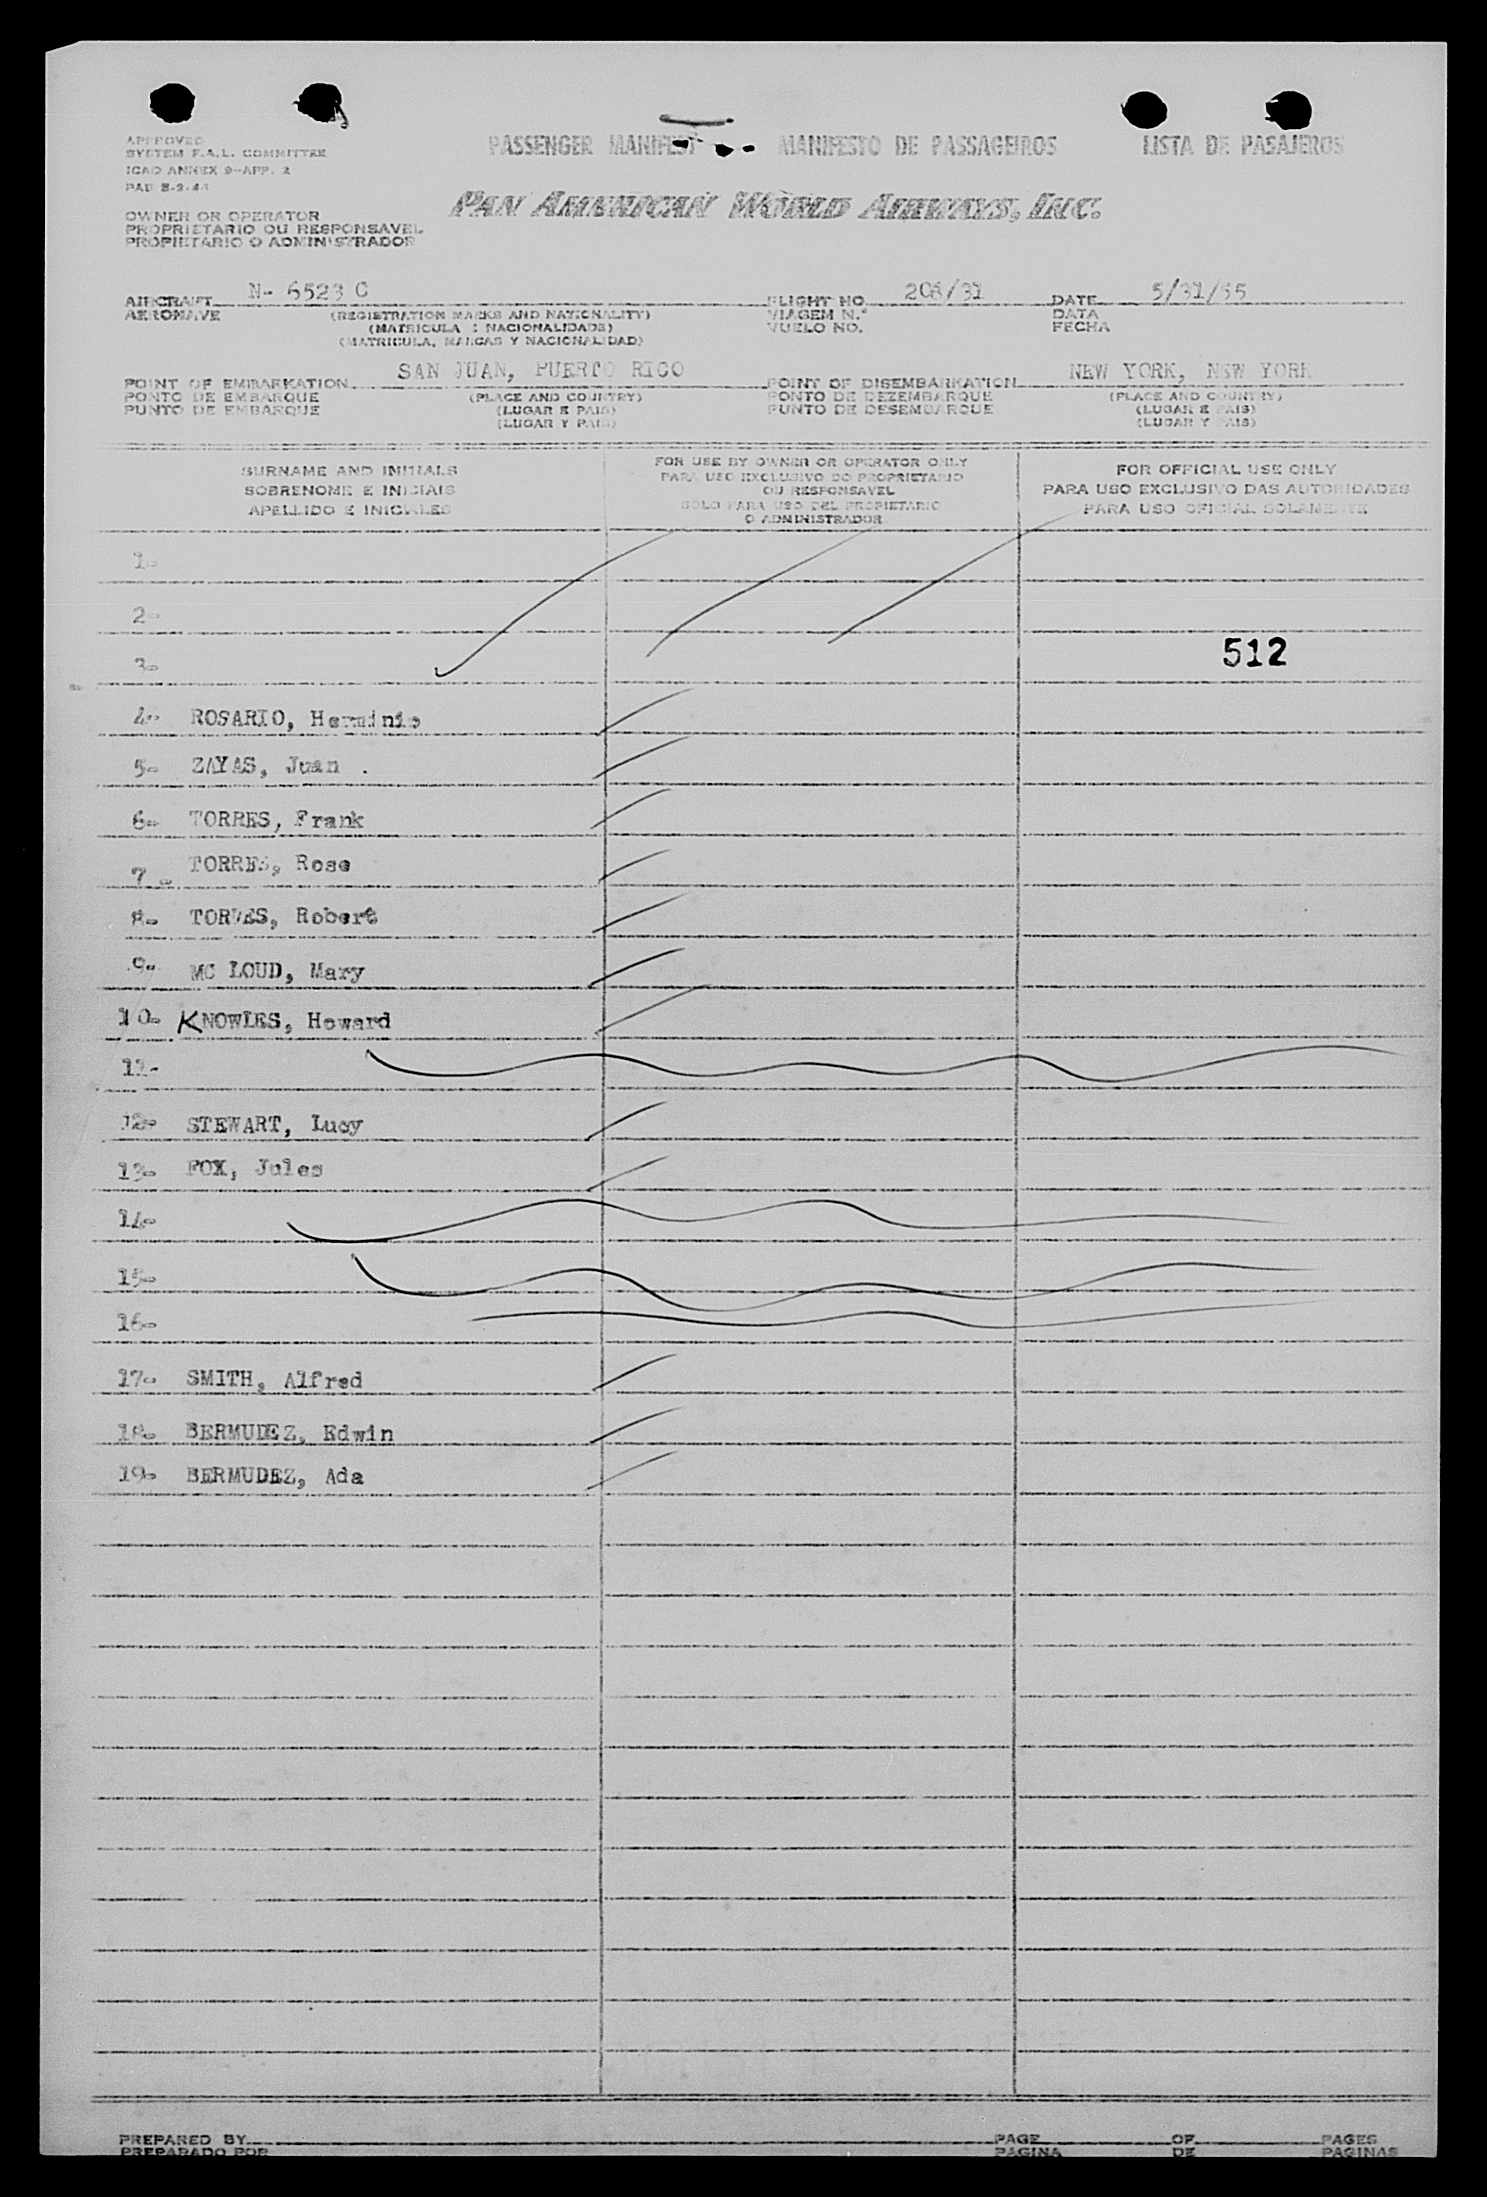 APPROVED
SYSTEM F.A.L. COMMITTEE
ICAO ANNEX 9-APP. 2
PASSENGER MANIFEST MANIFESTO DE PASSAGEIROS LISTA DE PASAJEROS
PAN AMERICAN WORLD AIRWAYS, INC.
OWNER OR OPERATOR
PROPRIETARIO OU RESPONSAVEL
PROPIETARIO O ADMINISTRADOR
AIRCRAFT N- 6523 C FLIGHT NO. 206/31 DATE 5/31/55
AERONAVE (REGISTRATION MARKS AND NATIONALITY) VIAGEM N.º DATA
(MATRICULA E NACIONALIDADE) VUELO NO. FECHA
(MATRICULA, MARCAS Y NACIONALIDAD)
POINT OF EMBARKATION SAN JUAN, PUERTO RICO POINT OF DISEMBARKATION NEW YORK, NEW YORK
PONTO DE EMBARQUE (PLACE AND COUNTRY) PONTO DE DEZEMBARQUE (PLACE AND COUNTRY)
PUNTO DE EMBARQUE (LUGAR E PAIS) PUNTO DE DESEMBARQUE (LUGAR E PAIS)
(LUGAR Y PAIS) (LUGAR Y PAIS)
SURNAME AND INITIALS FOR USE BY OWNER OR OPERATOR ONLY FOR OFFICIAL USE ONLY
SOBRENOME E INICIAIS PARA USO EXCLUSIVO DO PROPRIETARIO OU RESPONSAVEL PARA USO EXCLUSIVO DAS AUTORIDADES
APELLIDO E INICIALES SOLO PARA USO DEL PROPIETARIO O ADMINISTRADOR PARA USO OFICIAL SOLAMENTE
1-
2-
3- 512
4- ROSARIO, Herminio
5- ZAYAS, Juan .
6- TORRES, Frank
7- TORRES, Rose
8- TORRES, Robert
9- MC LOUD, Mary
10- KNOWLES, Howard
11-
12- STEWART, Lucy
13- FOX, Jules
14-
15-
16-
17- SMITH, Alfred
18- BERMUDEZ, Edwin
19- BERMUDEZ, Ada
PREPARED BY PAGE OF PAGES
PREPARADO POR PAGINA DE PAGINAS